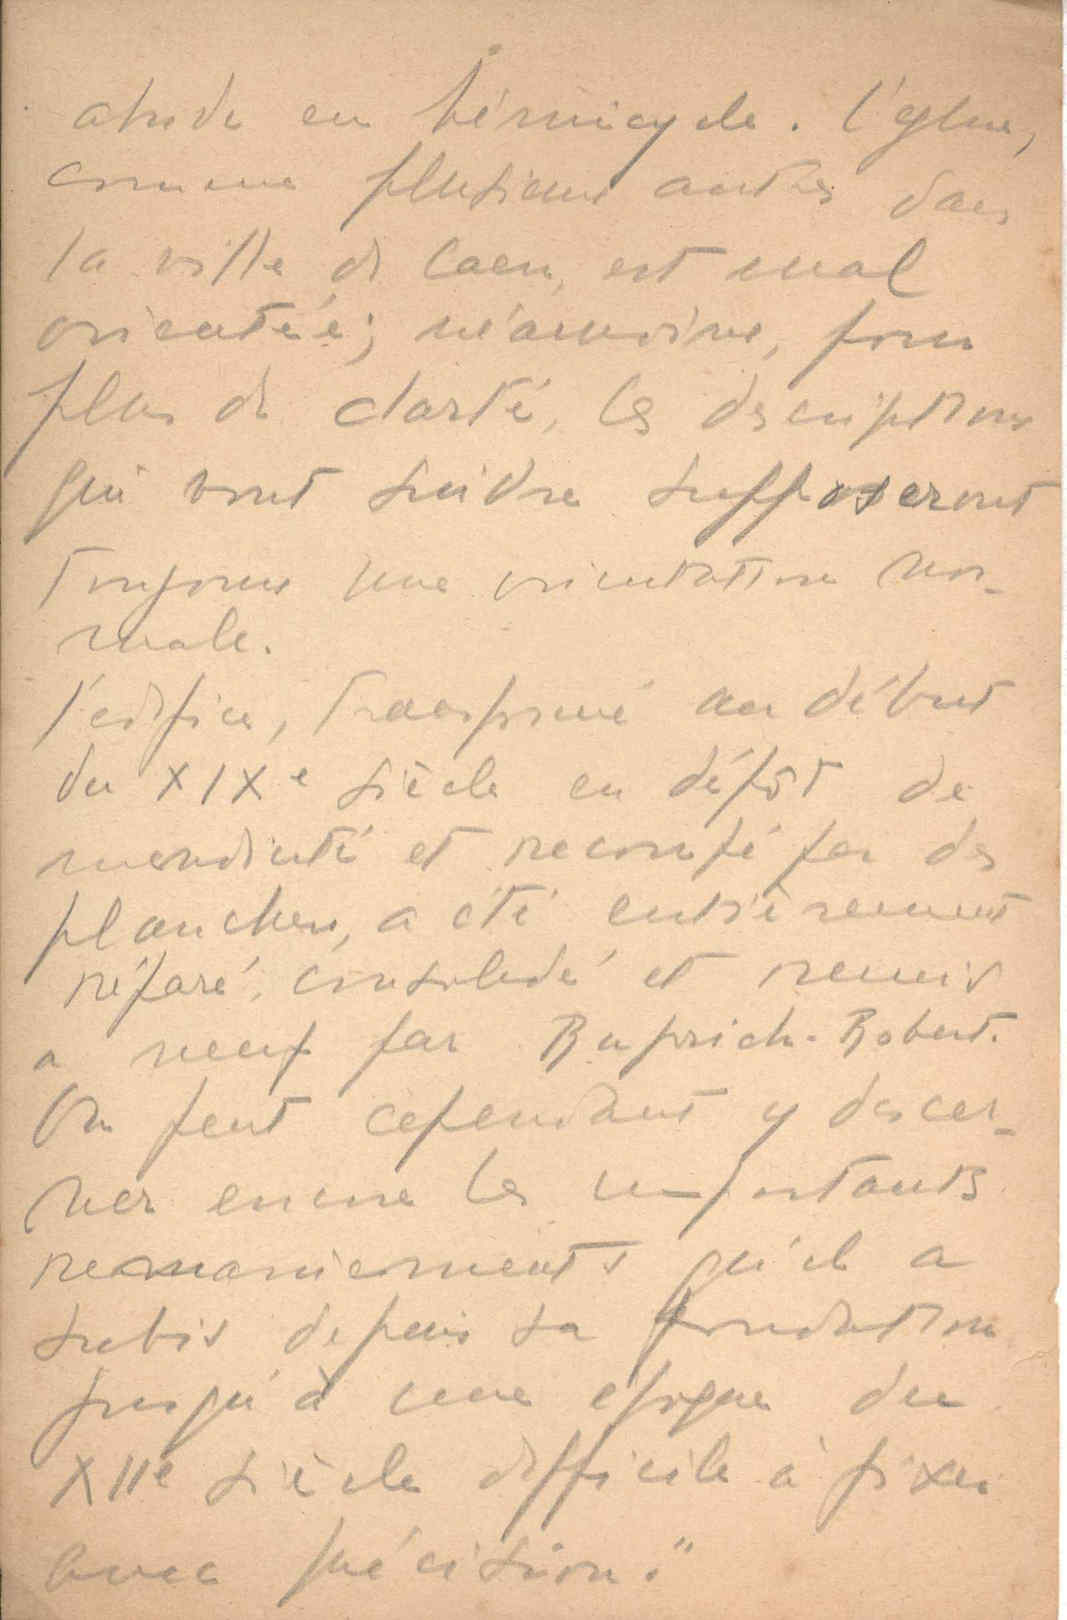 abside en hémicycle. L'église,
comme plusieurs autres dans
la ville de Caen, est mal
orientée; néanmoins, pour
plus de clarté, les descriptions
qui vont suivre supposeront
toujours une orientation nor-
male.
L'édifice, transformé au début
du XIXe siècle en dépôt de
mendicité et recoupé par des
planchers, a été entièrement
réparé, consolidé et remis
a neuf par Ruprich-Robert.
On peut cependant y discer-
ner encore les importants
remaniements qu'il a
subis depuis sa fondation
jusqu'à une époque du
XIIe siècle difficile à fixer
avec précision."